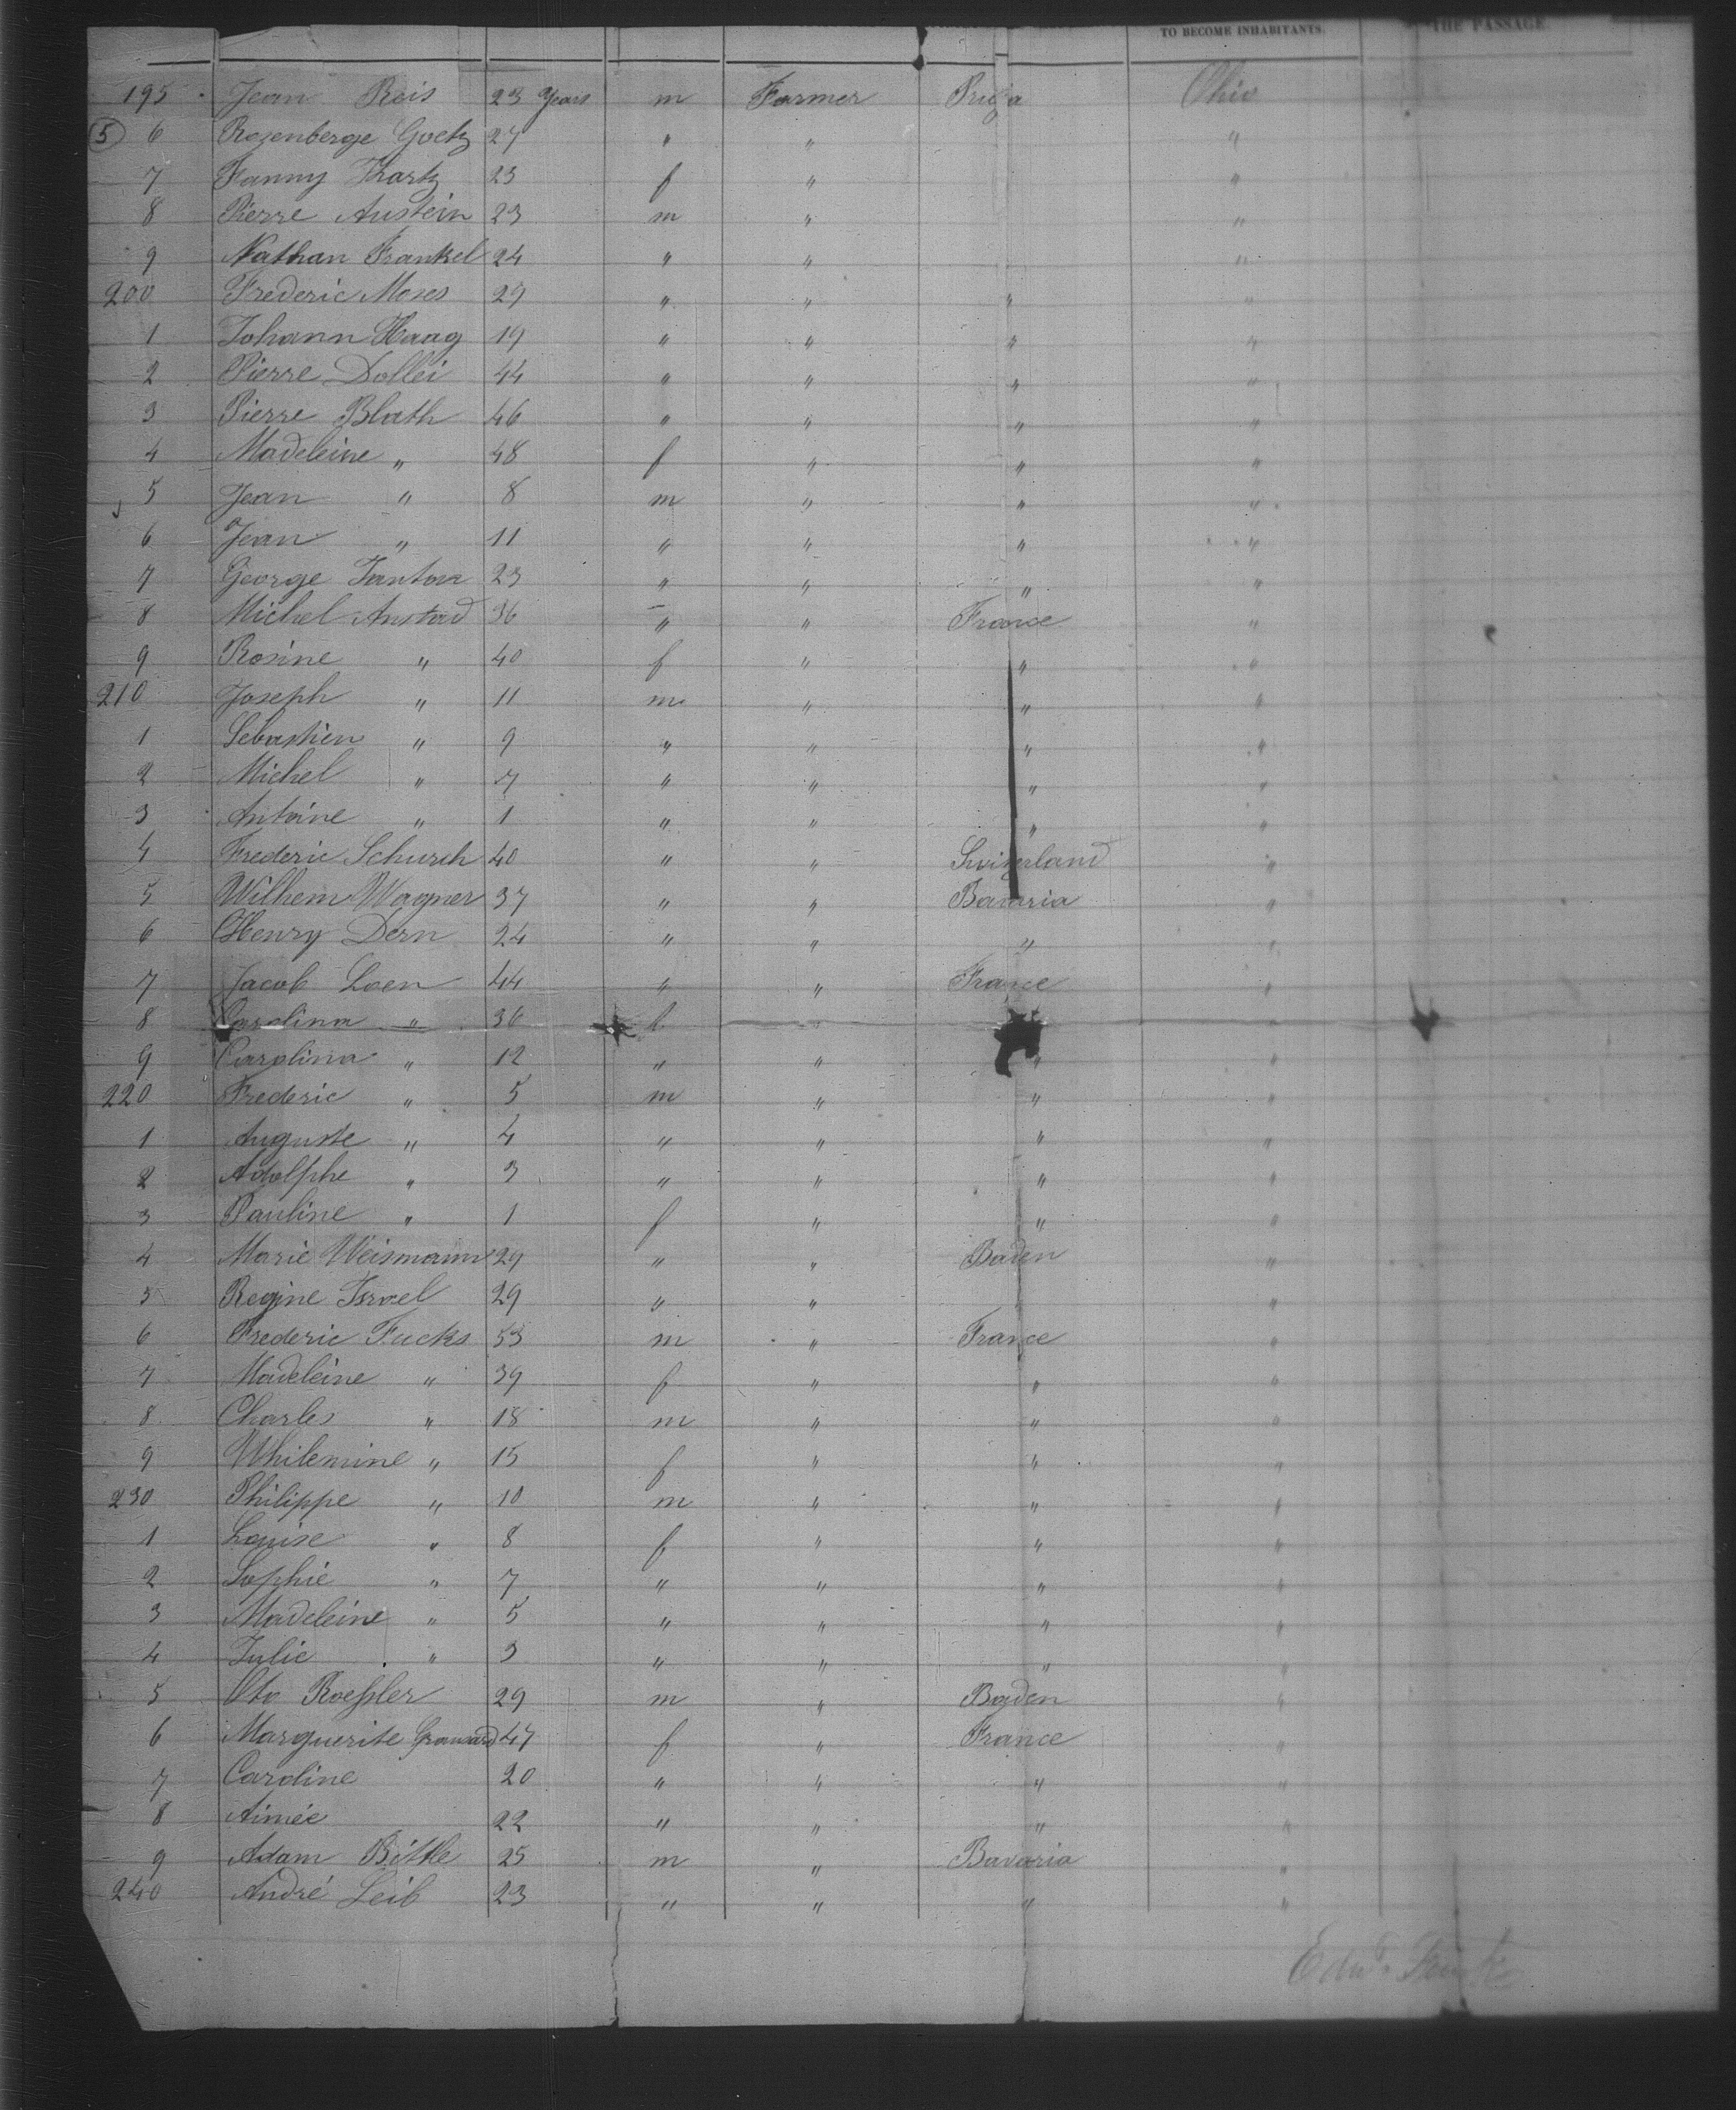 TO BECOME INHABITANTS. THE PASSAGE
195 Jean Reis 23 Years m Farmer Prußa Ohio
(5) 6 Rozenberge Goetz 27 " " "
7 Fanny Kartz 23 f " "
8 Pierre Austein 23 m " "
9 Nathan Frankel 24 " " "
200 Frederic Moses 29 " " " "
1 Johann Haag 19 " " " "
2 Pierre Dollei 44 " " " "
3 Pierre Blath 46 " " " "
4 Madeleine " 48 f " " "
5 Jean " 8 m " " "
6 Jean " 11 " " " "
7 George 23 " " " "
8 Michel Anstad 36 " " France "
9 Rosine " 40 f " " "
210 Joseph " 11 m " " "
1 Sebastien " 9 " " " "
2 Michel " 7 " " " "
3 Antoine " 1 " " " "
4 Frederic Schurch 40 " " Switzerland "
5 Wilhem Wagner 37 " " Bavaria "
6 Henry Dern 24 " " " "
7 Jacob Loen 44 " " France "
8 Carolina " 36 f " "
9 Carolina " 12 " " " "
220 Frederic " 5 m " " "
1 Auguste " 4 " " " "
2 Adolphe " 3 " " " "
3 Pauline " 1 f " " "
4 Marie Weismann 29 " " Baden "
5 Regine Israel 29 " " "
6 Frederic Fucks 53 m " France "
7 Madeleine " 39 f " " "
8 Charles " 18 m " " "
9 Whilemine " 15 f " " "
230 Philippe " 10 m " " "
1 Louise " 8 f " " "
2 Sophie " 7 " " " "
3 Madeleine " 5 " " " "
4 Julie " 3 " " " "
5 Oto Roeßler 29 m " Baden "
6 Marguerite 47 f " France "
7 Caroline 20 " " " "
8 Aimée 22 " " " "
9 Adam Bittle 25 m " Bavaria "
240 André Leib 23 " " " "
Edwd.